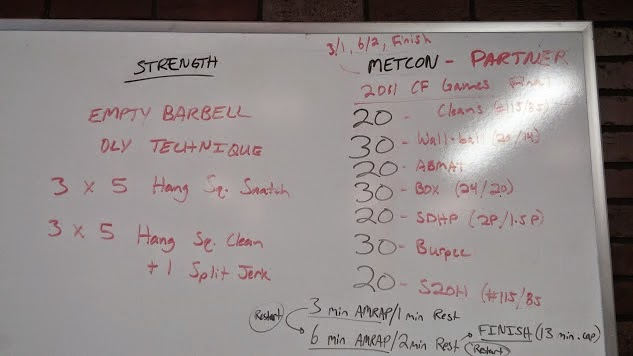 STRENGTH
EMPTY BARBELL
OLY TECHNIQUE
3 x 5 Hang Sq. Snatch
3 x 5 Hang Sq. Clean
+1 Split Jerk
3/1, 6/2, Finish
METCON - PARTNER
2011 CF Games Final
20 - Cleans (#115/85)
30 - Wall-ball (20/14)
20 - ABMAT
30 - BOX (24/20)
20 - SDHP (2P/1.5P)
30 - Burpee
20 - S2OH (#115/85
Restart 3 min AMRAP/1 min Rest
6 min AMRAP/2 min Rest
FINISH (13 min. cap)
Restart